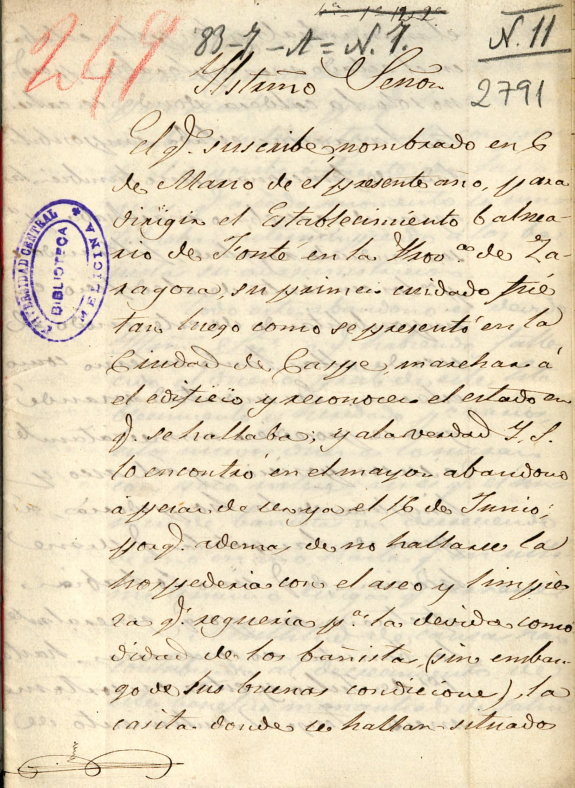 1ª - 1ª 12, 2ª
249
83-7-A=N.7.
N. 11
2791
Ilstmo Señor
El q.e suscribe, nombrado en 6
de Marzo de el presente año, para
dirigir el Establecimiento balnea-
rio de Fonté en la Prov.ca de Za-
ragoza, su primer cuidado fué
tan luego como se presentó en la
Ciudad de Caspe, marchar á
el edificio y reconocer el estado en
q.e se hallaba; y a la verdad Y. S.
lo encontró en el mayor abandono
á pesar de ser ya el 16 de Junio;
porq.e ademas de no hallarse la
hospederia con el aseo y limpie
za q.e requeria p.a la devida como
didad de los bañistas (sin embar-
go de sus buenas condiciones), la
casita donde se hallan situados
UNIVERSIDAD CENTRAL
BIBLIOTECA
MEDICINA